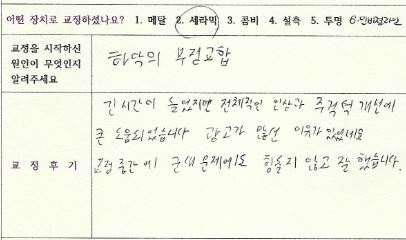 어떤 장치로 교정하셨나요? 1. 메탈 2. 세라믹 3. 콤비 4. 설측 5. 투명 6-인비절라인
교정을 시작하신 원인이 무엇인지 알려주세요
하악의 부정교합
교 정 후 기
긴 시간이 들었지만 전체적인 인상과 주걱턱 개선에
큰 도움되었습니다 광고가 많은 이유가 있었네요
교정 중간에 군대 문제에도 힘들지 않고 잘 했습니다.